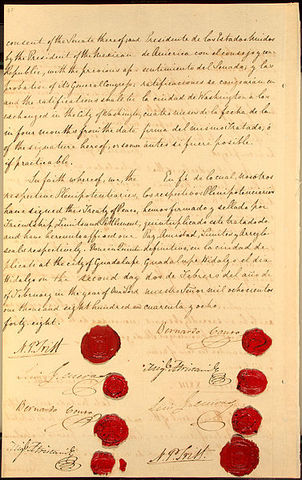 consent of the Senate thereof and
by the President of the Mexican
Republic, with the previous ap-
probation of its General Congress
and the ratifications shall be
exchanged in the City of Washington,
in four months from the date
of the signature hereof, or sooner
if practicable.
In faith whereof, we, the
respective Plenipotentiaries,
have signed this Treaty of Peace,
Friendship, Limits and Settlement,
and have hereunto affixed our
seals respectively. Done in Quintu-
plicate at the City of Guadalupe
Hidalgo on the second day
of February in the year of Our Lord
one thousand eight hundred and
forty eight.
N. P. Trist
Luis G. Cuevas
Bernardo Couto
Migl. Atristain
Presidente de los Estados Unidos
de America con el consejo y con-
sentimiento del Senado, y las
ratificaciones se cangearán en
la ciudad de Washington a los
cuatro meses de la fecha de la
firma del mismo Tratado, ó
antes si fuere posible.
En fé de lo cual, nosotros
los respectivos Plenipotenciarios
hemos firmado y sellado por
quintuplicado este tratado de
Paz, Amistad, Limites y Arreglo
definitivo, en la ciudad de
Guadalupe Hidalgo el dia
dos de Febrero del año de
nuestro Señor mil ochocientos
cuarenta y ocho.
Bernardo Couto
Migl. Atristain
Luis G. Cuevas
N. P. Trist